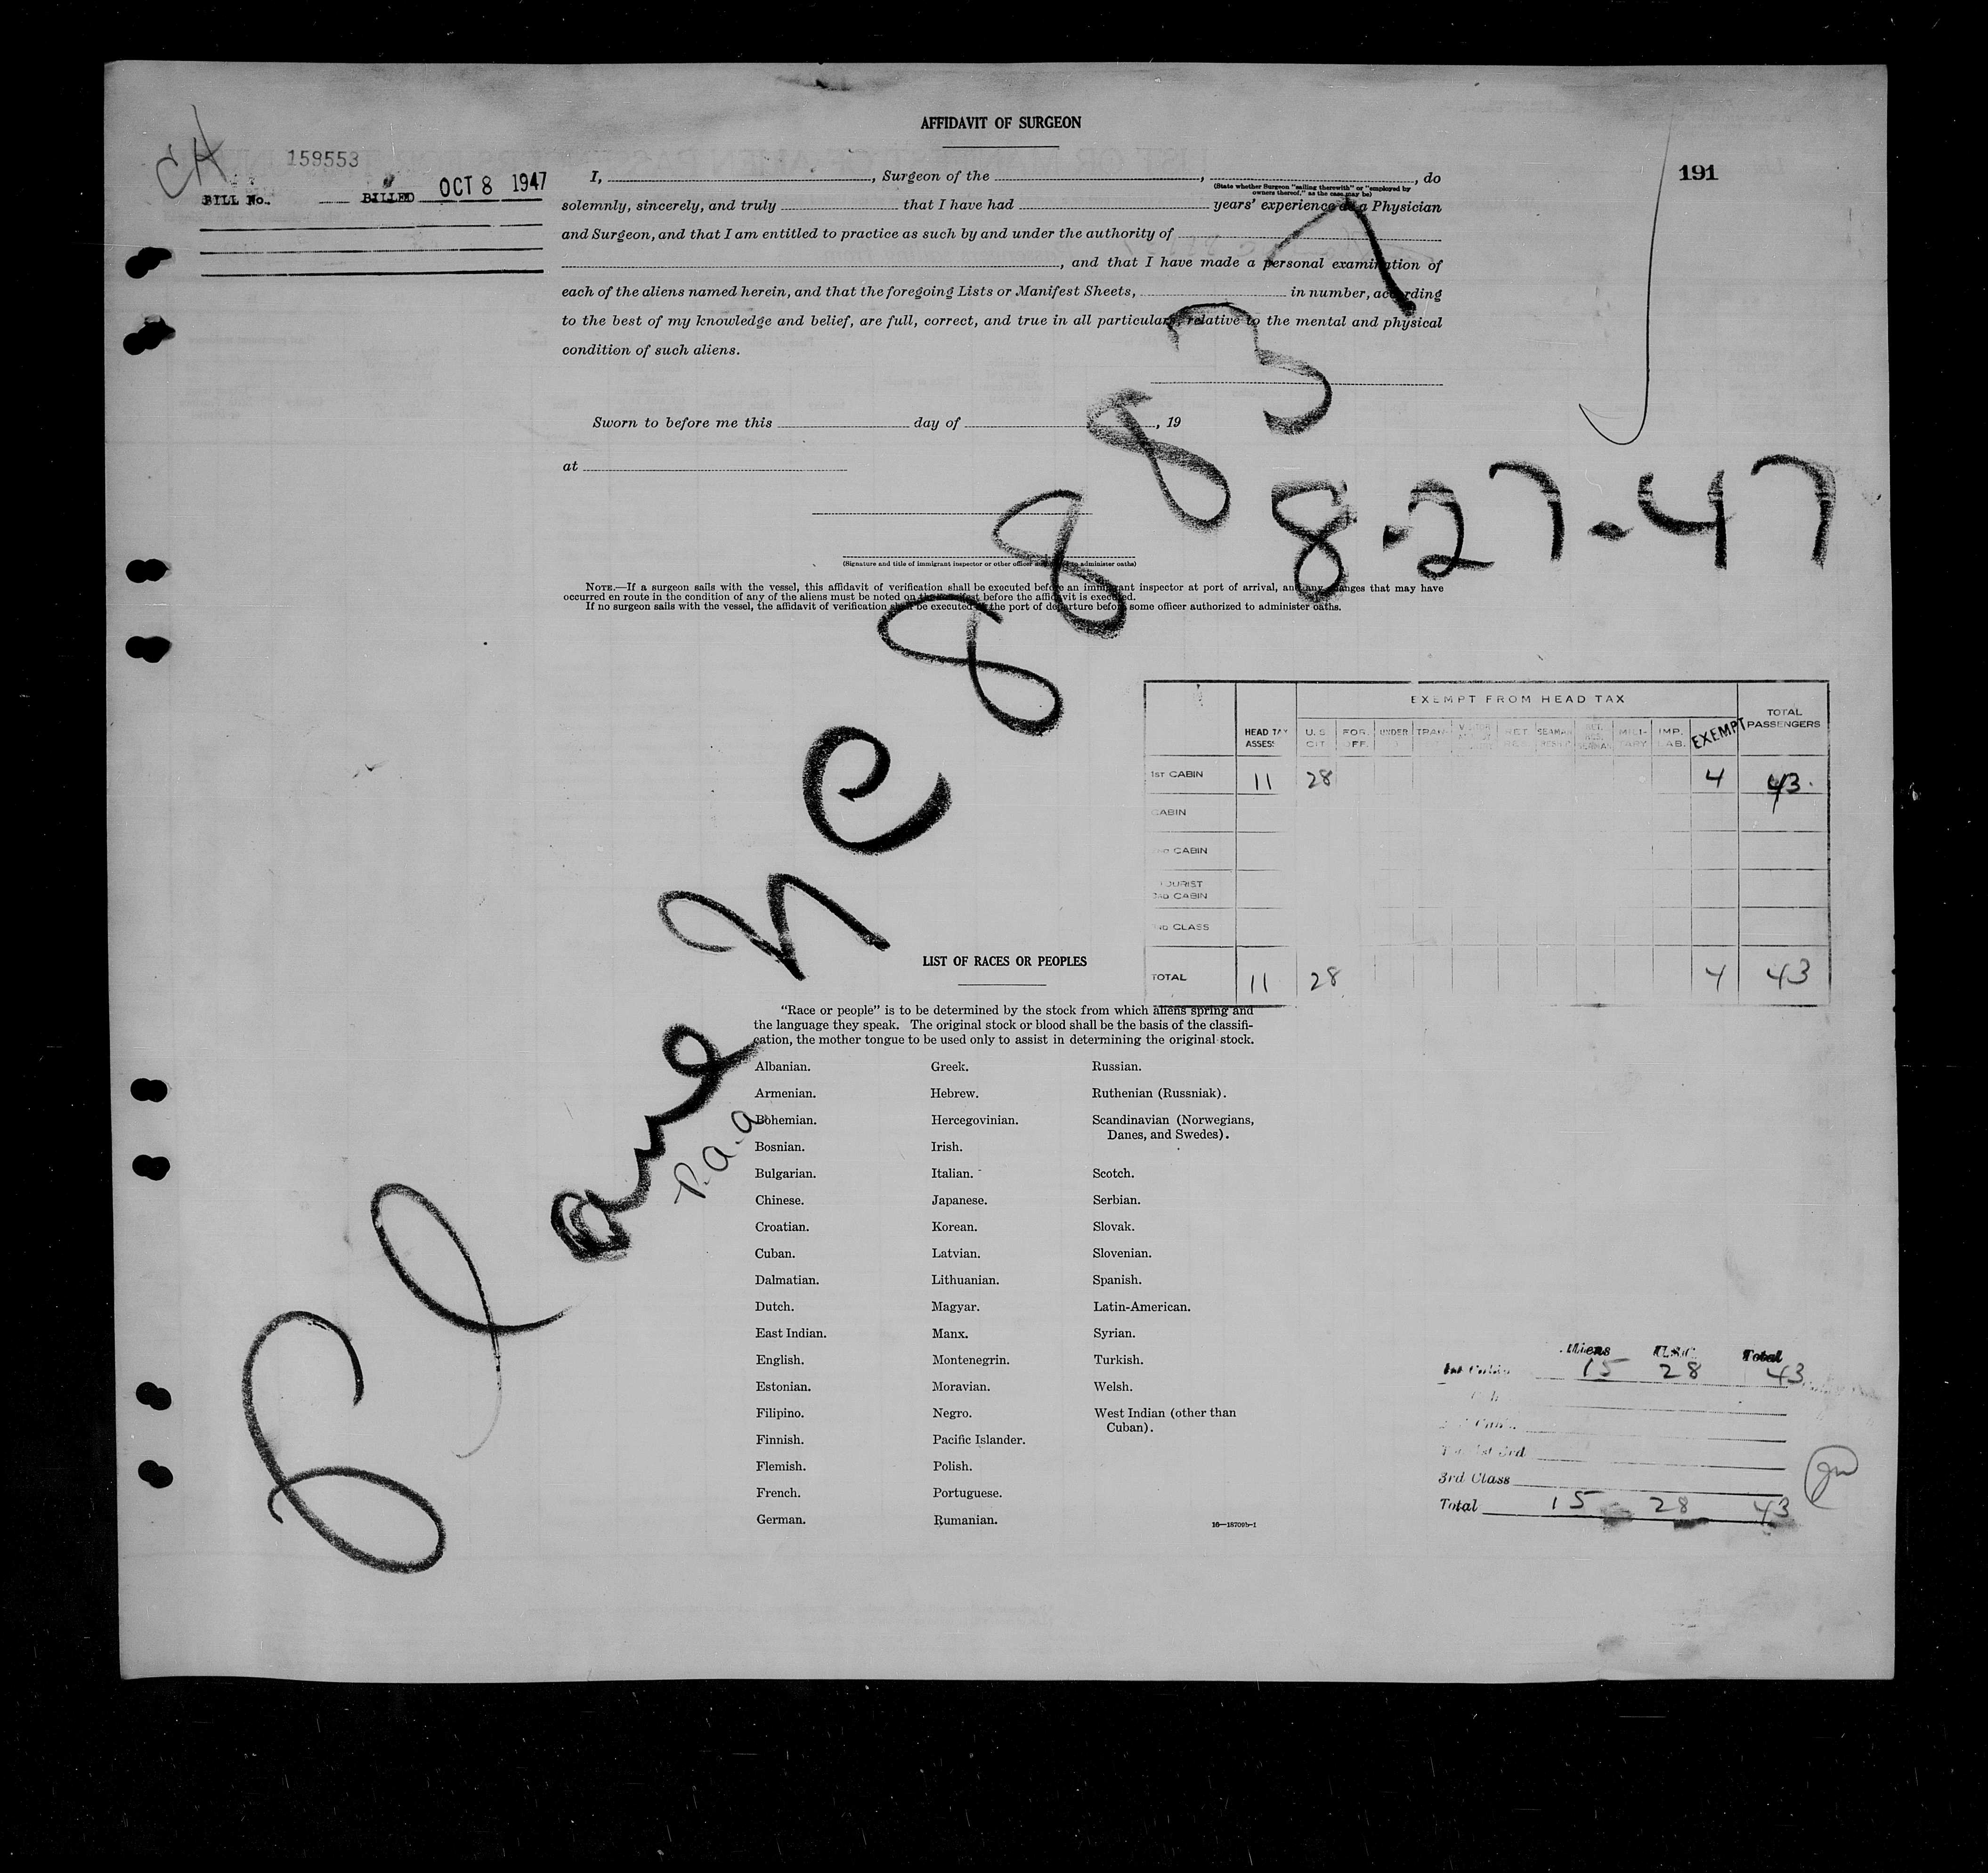 AFFIDAVIT OF SURGEON
CH
159553
BILL No. BILLED OCT 8 1947
191
I, , Surgeon of the , , do
(State whether Surgeon "sailing therewith" or "employed by owners thereof," as the case may be)
solemnly, sincerely, and truly that I have had years' experience as a Physician
and Surgeon, and that I am entitled to practice as such by and under the authority of
, and that I have made a personal examination of
each of the aliens named herein, and that the foregoing Lists or Manifest Sheets, in number, according
to the best of my knowledge and belief, are full, correct, and true in all particulars relative to the mental and physical
condition of such aliens.
Sworn to before me this day of , 19
at
(Signature and title of immigrant inspector or other officer authorized to administer oaths)
NOTE.—If a surgeon sails with the vessel, this affidavit of verification shall be executed before an immigrant inspector at port of arrival, and any changes that may have
occurred en route in the condition of any of the aliens must be noted on the manifest before the affidavit is executed.
If no surgeon sails with the vessel, the affidavit of verification shall be executed at the port of departure before some officer authorized to administer oaths.
Plane NC 88837
8-27-47
P.a.a
EXEMPT FROM HEAD TAX
HEAD TAX ASSESS U.S. CIT FOR. OFF. UNDER TRAN SEAMAN MILI-TARY IMP. LAB. EXEMPT TOTAL PASSENGERS
1ST CABIN 11 28 4 43
CABIN
CABIN
TOURIST
3RD CABIN
CLASS
TOTAL 11 28 4 43
LIST OF RACES OR PEOPLES
"Race or people" is to be determined by the stock from which aliens spring and
the language they speak. The original stock or blood shall be the basis of the classifi-
cation, the mother tongue to be used only to assist in determining the original stock.
Albanian.
Armenian.
Bohemian.
Bosnian.
Bulgarian.
Chinese.
Croatian.
Cuban.
Dalmatian.
Dutch.
East Indian.
English.
Estonian.
Filipino.
Finnish.
Flemish.
French.
German.
Greek.
Hebrew.
Hercegovinian.
Irish.
Italian.
Japanese.
Korean.
Latvian.
Lithuanian.
Magyar.
Manx.
Montenegrin.
Moravian.
Negro.
Pacific Islander.
Polish.
Portuguese.
Rumanian.
Russian.
Ruthenian (Russniak).
Scandinavian (Norwegians,
Danes, and Swedes).
Scotch.
Serbian.
Slovak.
Slovenian.
Spanish.
Latin-American.
Syrian.
Turkish.
Welsh.
West Indian (other than
Cuban).
16—18709b-1
Aliens U.S.C. Total
1st Cabin 15 28 43
3rd Class
Total 15 28 43